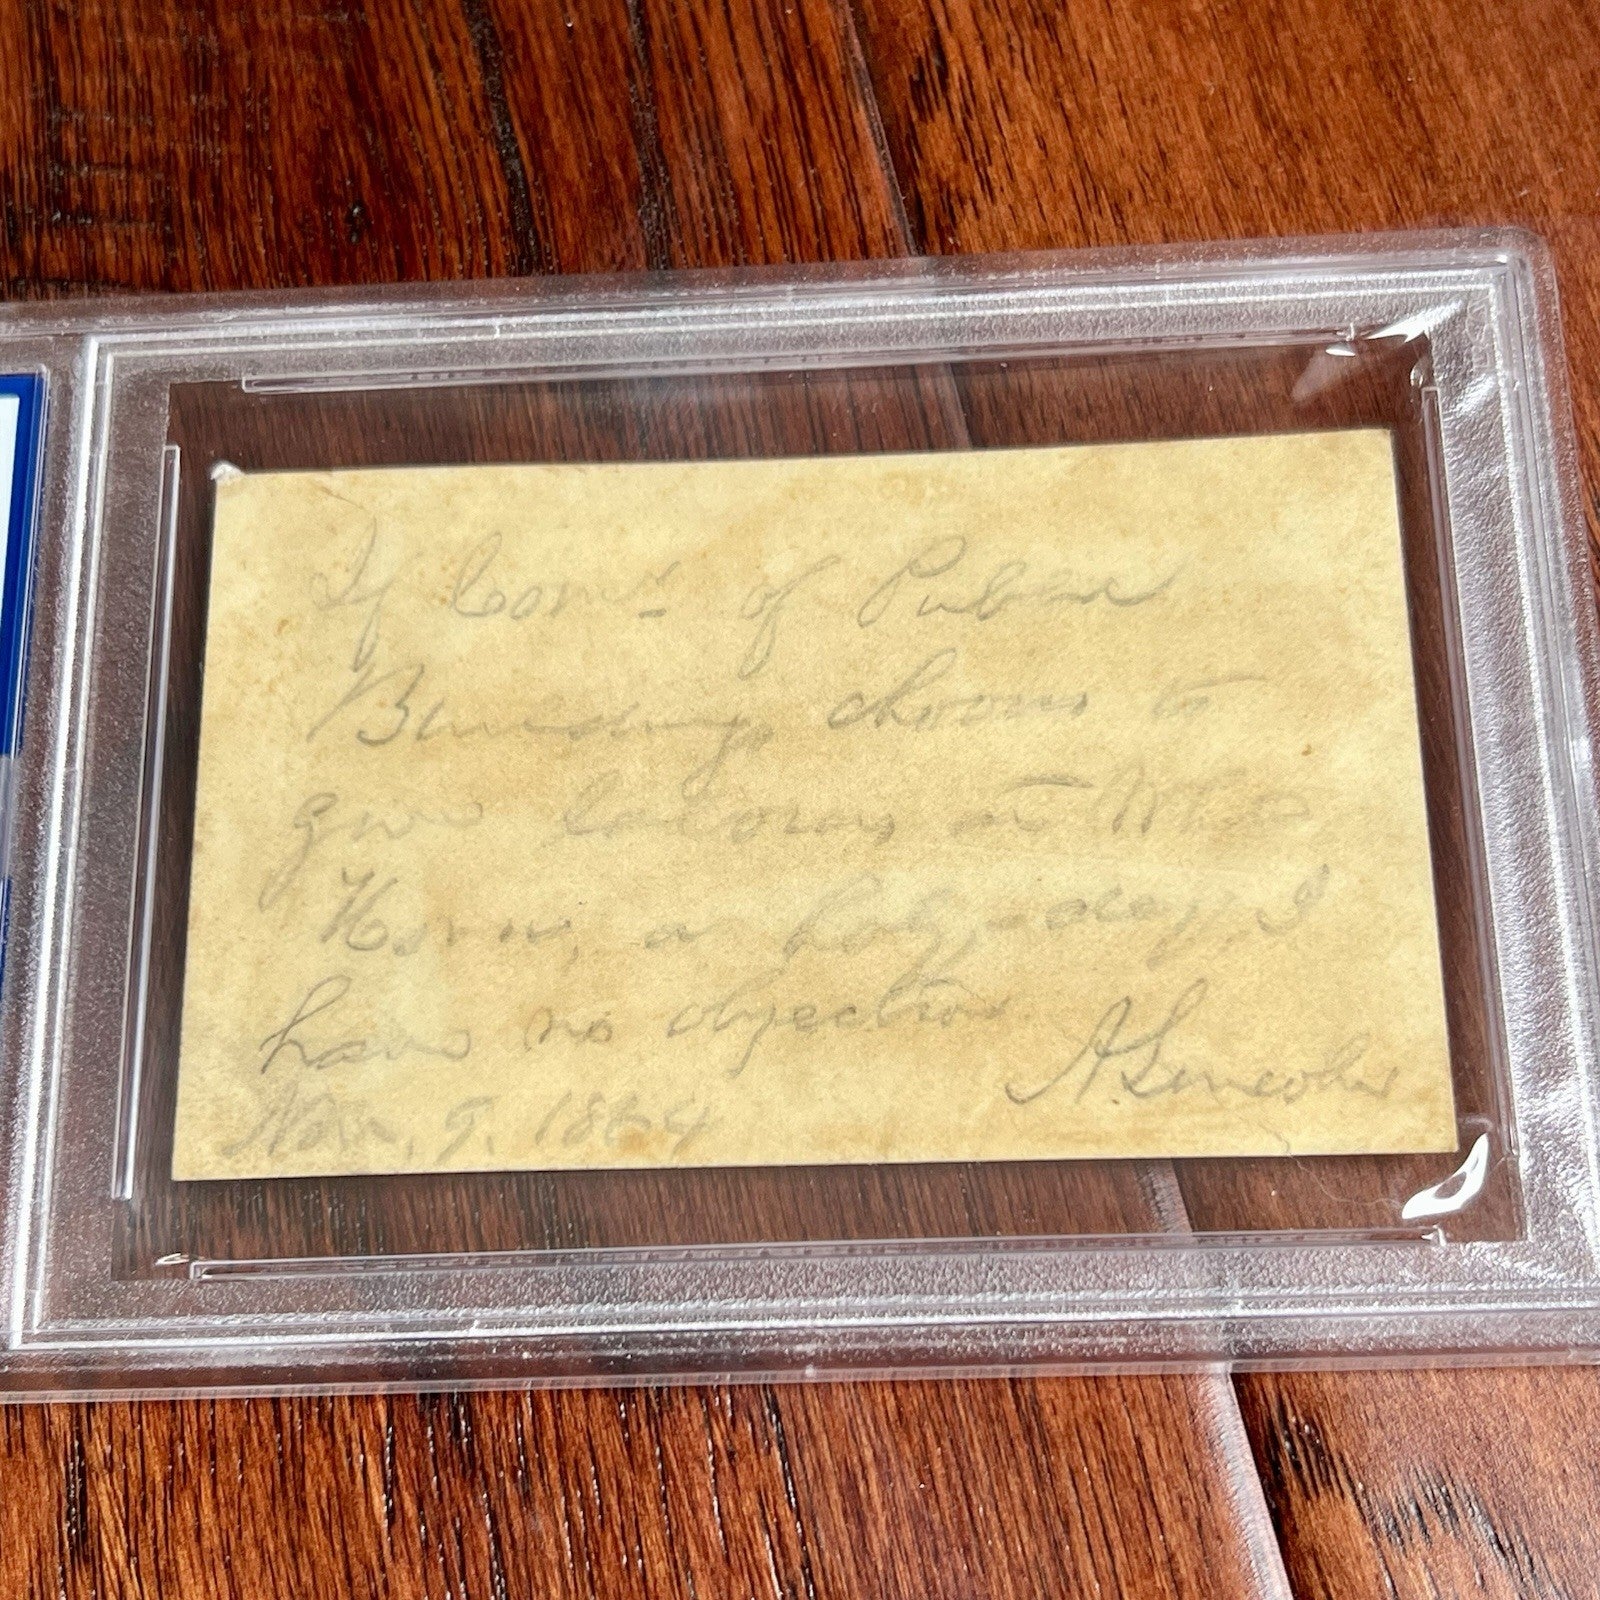 If Com.r of Public
Buildings, chooses to
give laborers at White
House, a holy-day, I
have no objection.
A. Lincoln
Nov. 9. 1864